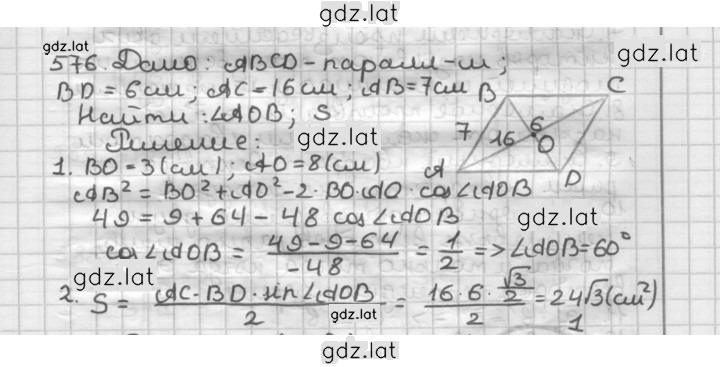 gdz.lat
gdz.lat
576. Дано: ABCD - паралл-м;
gdz.lat
BD = 6см; AC = 16см; AB = 7см
B
C
Найти: ∠AOB; S
6
7
16
O
Решение:
gdz.lat
1. BO = 3(см); AO = 8(см)
A
D
AB² = BO² + AO² - 2·BO·AO·cos∠AOB
49 = 9 + 64 - 48 cos∠AOB
gdz.lat
cos∠AOB = (49-9-64)/(-48) = 1/2 => ∠AOB = 60°
gdz.lat
2. S = (AC·BD·sin∠AOB)/2 = (16·6·√3/2)/2 = 24√3(см²)
gdz.lat
1
gdz.lat